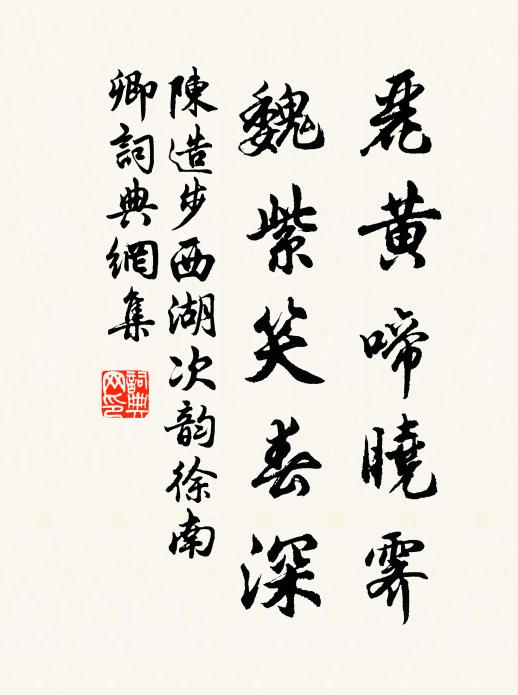 麗黃啼曉霽
魏紫笑春深
陳造步西湖次韵徐南
卿詞典網集
詞典網印